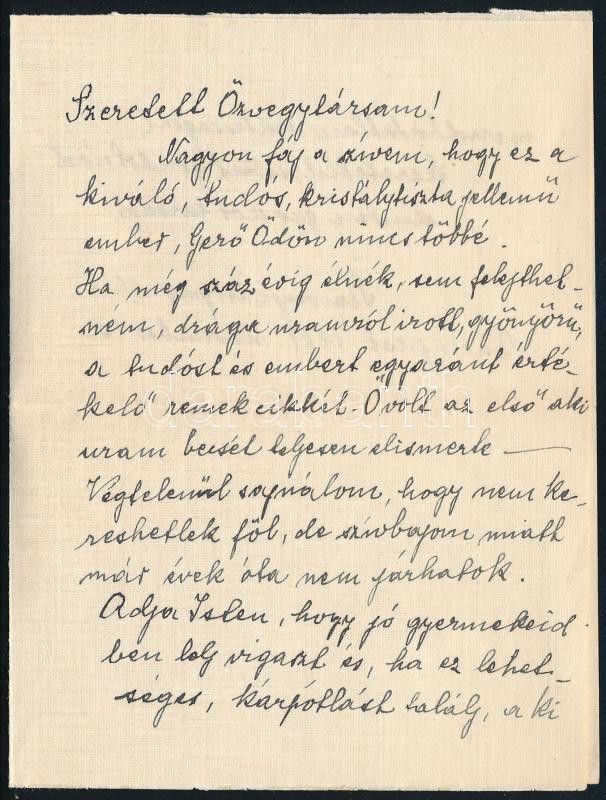 Szeretett Özvegytársam!
Nagyon fáj a szívem, hogy ez a
kiváló, tudós, kristálytiszta jellemű
ember, Gerő Ödön nincs többé.
Ha még száz évig élnék, sem felejthet-
ném, drága uramról irott, gyönyörű,
a tudóst és embert egyaránt érté-
kelő remek cikkét. Ő volt az első aki
uram becsét teljesen elismerte —
Végtelenül sajnálom, hogy nem ke-
reshetlek föl, de szívbajom miatt
már évek óta nem járhatok.
Adja Isten, hogy jó gyermekeid
ben lelj vigaszt és, ha ez lehet-
séges, kárpótlást találj, a ki
darabanth